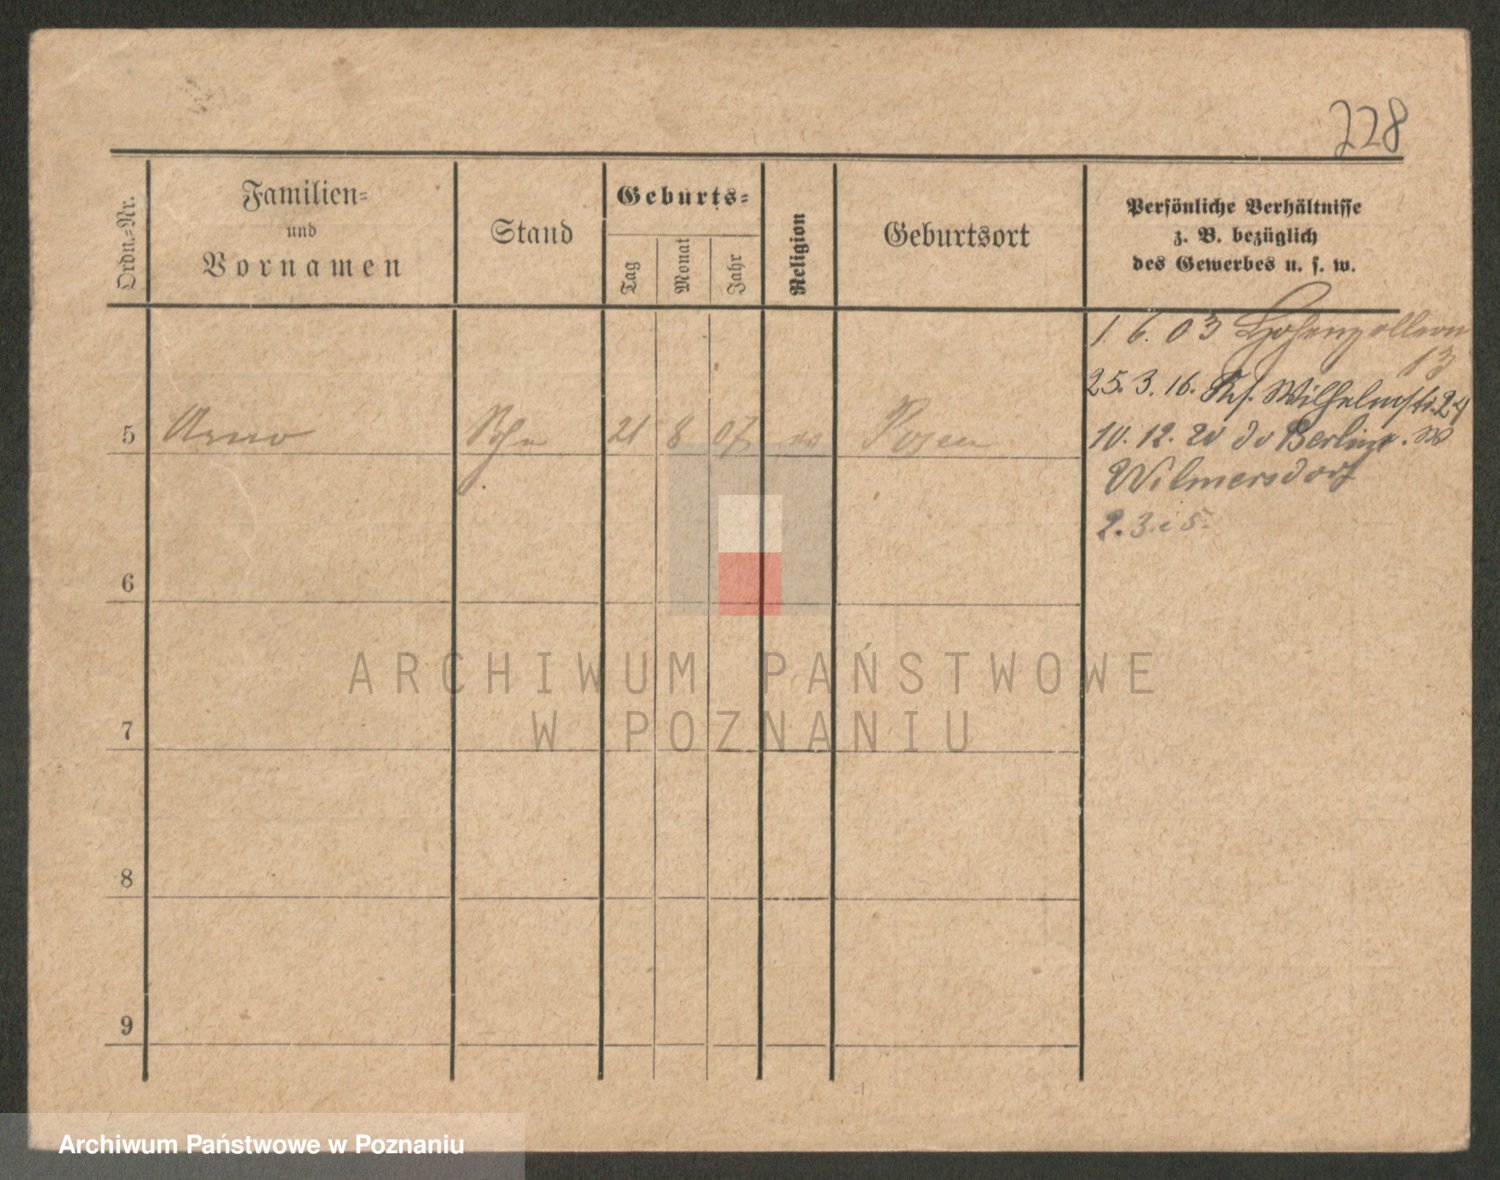 228
Ordn.-Nr.
Familien-
und
Vornamen
Stand
Geburts-
Tag
Monat
Jahr
Religion
Geburtsort
Persönliche Verhältnisse
z. B. bezüglich
des Gewerbes u. s. w.
1. 6. 03 Hohenzollern
13
25. 3. 16. Wilhelmstr. 24
5 Arno Sohn 21 8 07 Posen
10. 12. 20 Berlin
Wilmersdorf
2. 3.
6
7
8
9
ARCHIWUM PAŃSTWOWE
W POZNANIU
Archiwum Państwowe w Poznaniu